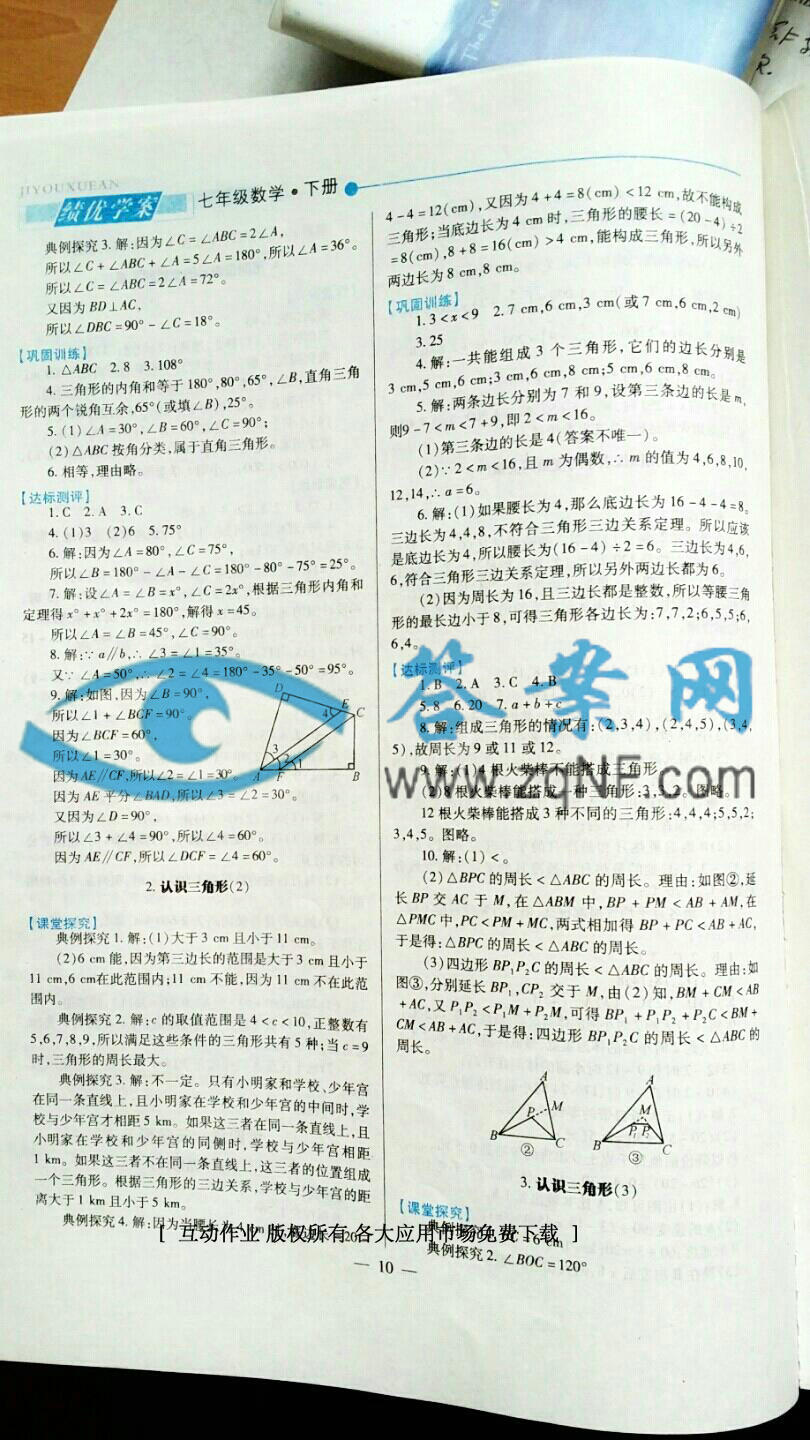 The Ra
JIYOUXUEAN
绩优学案
七年级数学·下册
典例探究3.解:因为∠C=∠ABC=2∠A,
所以∠C+∠ABC+∠A=5∠A=180°,所以∠A=36°。
所以∠C=∠ABC=2∠A=72°。
又因为BD⊥AC,
所以∠DBC=90°-∠C=18°。
【巩固训练】
1.△ABC 2.8 3.108°
4.三角形的内角和等于180°,80°,65°,∠B,直角三角
形的两个锐角互余,65°(或填∠B),25°。
5.(1)∠A=30°,∠B=60°,∠C=90°;
(2)△ABC按角分类,属于直角三角形。
6.相等,理由略。
【达标测评】
1.C 2.A 3.C
4.(1)3 (2)6 5.75°
6.解:因为∠A=80°,∠C=75°,
所以∠B=180°-∠A-∠C=180°-80°-75°=25°。
7.解:设∠A=∠B=x°,∠C=2x°,根据三角形内角和
定理得x°+x°+2x°=180°,解得x=45。
所以∠A=∠B=45°,∠C=90°。
8.解:∵a∥b,∴∠3=∠1=35°。
又∵∠A=50°,∴∠2=∠4=180°-35°-50°=95°。
9.解:如图,因为∠B=90°,
所以∠1+∠BCF=90°。
因为∠BCF=60°,
所以∠1=30°。
因为AE∥CF,所以∠2=∠1=30°。
因为AE平分∠BAD,所以∠3=∠2=30°。
又因为∠D=90°,
所以∠3+∠4=90°,所以∠4=60°。
因为AE∥CF,所以∠DCF=∠4=60°。
D E C 4 3 2 1 A F B
2.认识三角形(2)
【课堂探究】
典例探究1.解:(1)大于3 cm且小于11 cm。
(2)6 cm能,因为第三边长的范围是大于3 cm且小于
11 cm,6 cm在此范围内;11 cm不能,因为11 cm不在此范
围内。
典例探究2.解:c的取值范围是4<c<10,正整数有
5,6,7,8,9,所以满足这些条件的三角形共有5种;当c=9
时,三角形的周长最大。
典例探究3.解:不一定。只有小明家和学校、少年宫
在同一条直线上,且小明家在学校和少年宫的中间时,学
校与少年宫才相距5 km。如果这三者在同一条直线上,且
小明家在学校和少年宫的同侧时,学校与少年宫相距
1 km。如果这三者不在同一条直线上,这三者的位置组成
一个三角形。根据三角形的三边关系,学校与少年宫的距
离大于1 km且小于5 km。
典例探究4.解:因为当腰长为4 cm
4-4=12(cm),又因为4+4=8(cm)<12 cm,故不能构成
三角形;当底边长为4 cm时,三角形的腰长=(20-4)÷2
=8(cm),8+8=16(cm)>4 cm,能构成三角形,所以另外
两边长为8 cm,8 cm。
【巩固训练】
1.3<x<9 2.7 cm,6 cm,3 cm(或7 cm,6 cm,2 cm)
3.25
4.解:一共能组成3个三角形,它们的边长分别是
3 cm,5 cm,6 cm;3 cm,6 cm,8 cm;5 cm,6 cm,8 cm。
5.解:两条边长分别为7和9,设第三条边的长是m,
则9-7<m<7+9,即2<m<16。
(1)第三条边的长是4(答案不唯一)。
(2)∵2<m<16,且m为偶数,∴m的值为4,6,8,10,
12,14,∴a=6。
6.解:(1)如果腰长为4,那么底边长为16-4-4=8。
三边长为4,4,8,不符合三角形三边关系定理。所以应该
是底边长为4,所以腰长为(16-4)÷2=6。三边长为4,6,
6,符合三角形三边关系定理,所以另外两边长都为6。
(2)因为周长为16,且三边长都是整数,所以等腰三角
形的最长边小于8,可得三角形各边长为:7,7,2;6,5,5;6,
6,4。
【达标测评】
1.B 2.A 3.C 4.B
5.8 6.20 7.a+b+c
8.解:组成三角形的情况有:(2,3,4),(2,4,5),(3,4,
5),故周长为9或11或12。
9.解:(1)4根火柴棒不能搭成三角形。
(2)8根火柴棒能搭成一种三角形:3,3,2。图略。
12根火柴棒能搭成3种不同的三角形:4,4,4;5,5,2;
3,4,5。图略。
10.解:(1)<。
(2)△BPC的周长<△ABC的周长。理由:如图②,延
长BP交AC于M,在△ABM中,BP+PM<AB+AM,在
△PMC中,PC<PM+MC,两式相加得BP+PC<AB+AC,
于是得:△BPC的周长<△ABC的周长。
(3)四边形BP₁P₂C的周长<△ABC的周长。理由:如
图③,分别延长BP₁,CP₂交于M,由(2)知,BM+CM<AB
+AC,又P₁P₂<P₁M+P₂M,可得BP₁+P₁P₂+P₂C<BM+
CM<AB+AC,于是得:四边形BP₁P₂C的周长<△ABC的
周长。
A P M B C ②
A M P₁ P₂ B C ③
3.认识三角形(3)
【课堂探究】
典例探究2.∠BOC=120°
— 10 —
答案网
www.zqNF.com
[ 互动作业 版权所有 各大应用市场免费下载 ]